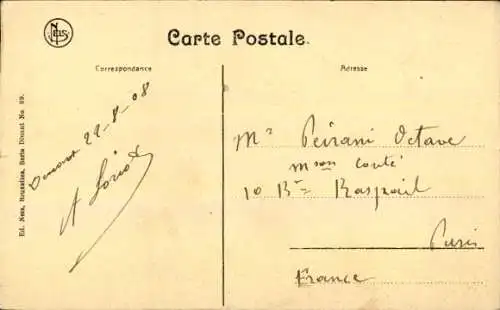 NELS
Carte Postale.
Correspondance
Adresse
Ed. Nels, Bruxelles, Serie Dinant No. 99.
Dinant 22-8-08
A
Mr Peirani Octave
mson Conté
10 Bd Raspail
Paris
France